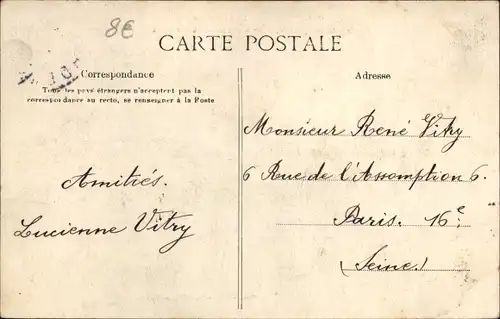 8€
CARTE POSTALE
Correspondance
Tous les pays étrangers n'acceptent pas la
correspondance au recto, se renseigner à la Poste
Amitiés.
Lucienne Vitry
Adresse
Monsieur René Vitry
6 Rue de l'Assomption 6.
Paris. 16e
(Seine.)